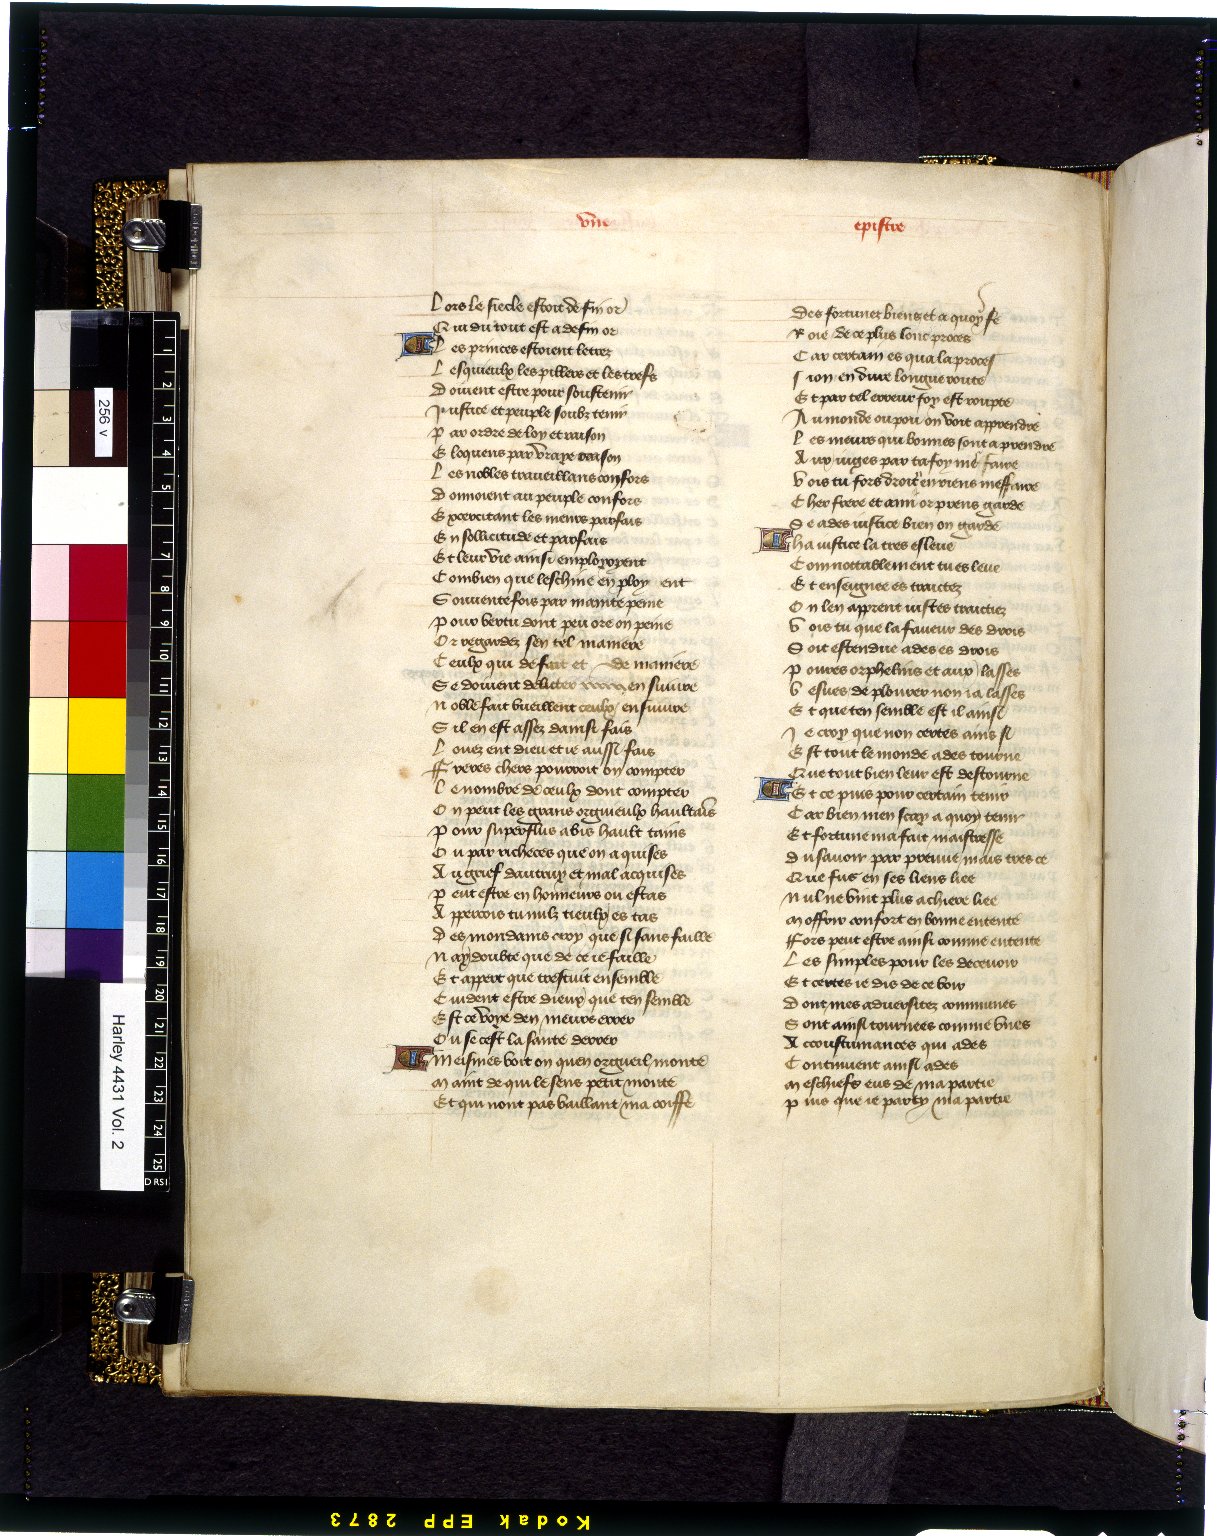 vne
epistre
Lors le siecle estoit de fin or
Qui du tout est a defin or
Les princes estoient lettrez
Lesquieulx les pillers et les trefs
Doiuent estre pour soustenir
Justice et peuple soubz tenir
Par ordre de loy et raison
Eloquens par vraye raison
Les nobles trauaillans confors
Donnoient au peuple confors
Excercitant les meurs parfais
En sollicitude et par fais
Et leur vie ainsi employoyent
Combien que leschine en ployent
Souuente fois par mainte peine
Pour vertu dont peu ore on peine
Or regardez sen tel maniere
Ceulx qui de fait et de maniere
Se doiuent deliter en suiure
Noble fait vueillent ceulx ensuiure
Sil en est assez dainsi fais
Louez ent dieu et ie aussi fais
Freres chers pourroit on compter
Le nombre de ceulx dont compter
On peut les grans orguieulx haultains
Pour superflus abis hault tains
Ou par richeces que on a quises
Au grief dautruy et mal acquises
Peut estre en honneurs ou estas
Appercois tu nulz tieulx es tas
Des mondains croy que si sans faille
Nay doubte que de ce ie faille
Et appert que trestuit ensemble
Cuident estre dieux que ten semble
Est ce voye den meurs errer
Ou se cest la sante derrer
Meismes voit on quen orgueil monte
Maint de qui le sens petit monte
Et qui nont pas vaillant ma coiffe
Des fortunez biens et a quoy se
Roie de ce plus lonc proces
Car certain es qua la proces
sion en dure longue route
Et par tel erreur foy est roupte
Au monde ou pou on voit apprendre
Les meurs qui bonnes sont a prendre
Aux iuges par ta foy me faire
Vois tu fors droit en riens meffaire
Cher frere et ami or prens garde
Se ades iustice bien on garde
Ha iustice la tres esleue
Com nottablement tu es leue
Et enseignee es traictez
On len apprent iustes traictiez
Vois tu que la faueur des drois
Soit estendue ades es drois
Poures orphelins et aux lasses
Vesues de plourer non ia lasses
Et que ten semble est il ainsi
Je croy que non certes ains si
Est tout le monde ades tourne
Que tout bien leur est destourne
Et ce puis pour certain tenir
Car bien men scay a quoy tenir
Et fortune ma fait maistresse
Du sauoir par preuue mais tres ce
Que fus en ses liens liee
Nul ne vint plus a chiere liee
Moffrir confort en bonne entente
Fors peut estre ainsi comme entente
Les simples pour les deceuoir
Et certes ie dis de ce voir
Dont mes aduersitez communes
Sont ainsi tournees comme vnes
Accoustumances qui ades
Continuent ainsi ades
Meschiefs eus de ma partie
Puis que ie party ma partie
256 v
Harley 4431 Vol. 2
1
2
3
4
5
7
8
9
10
11
12
13
14
15
16
17
18
19
20
21
22
23
24
25
Kodak EPP 2873